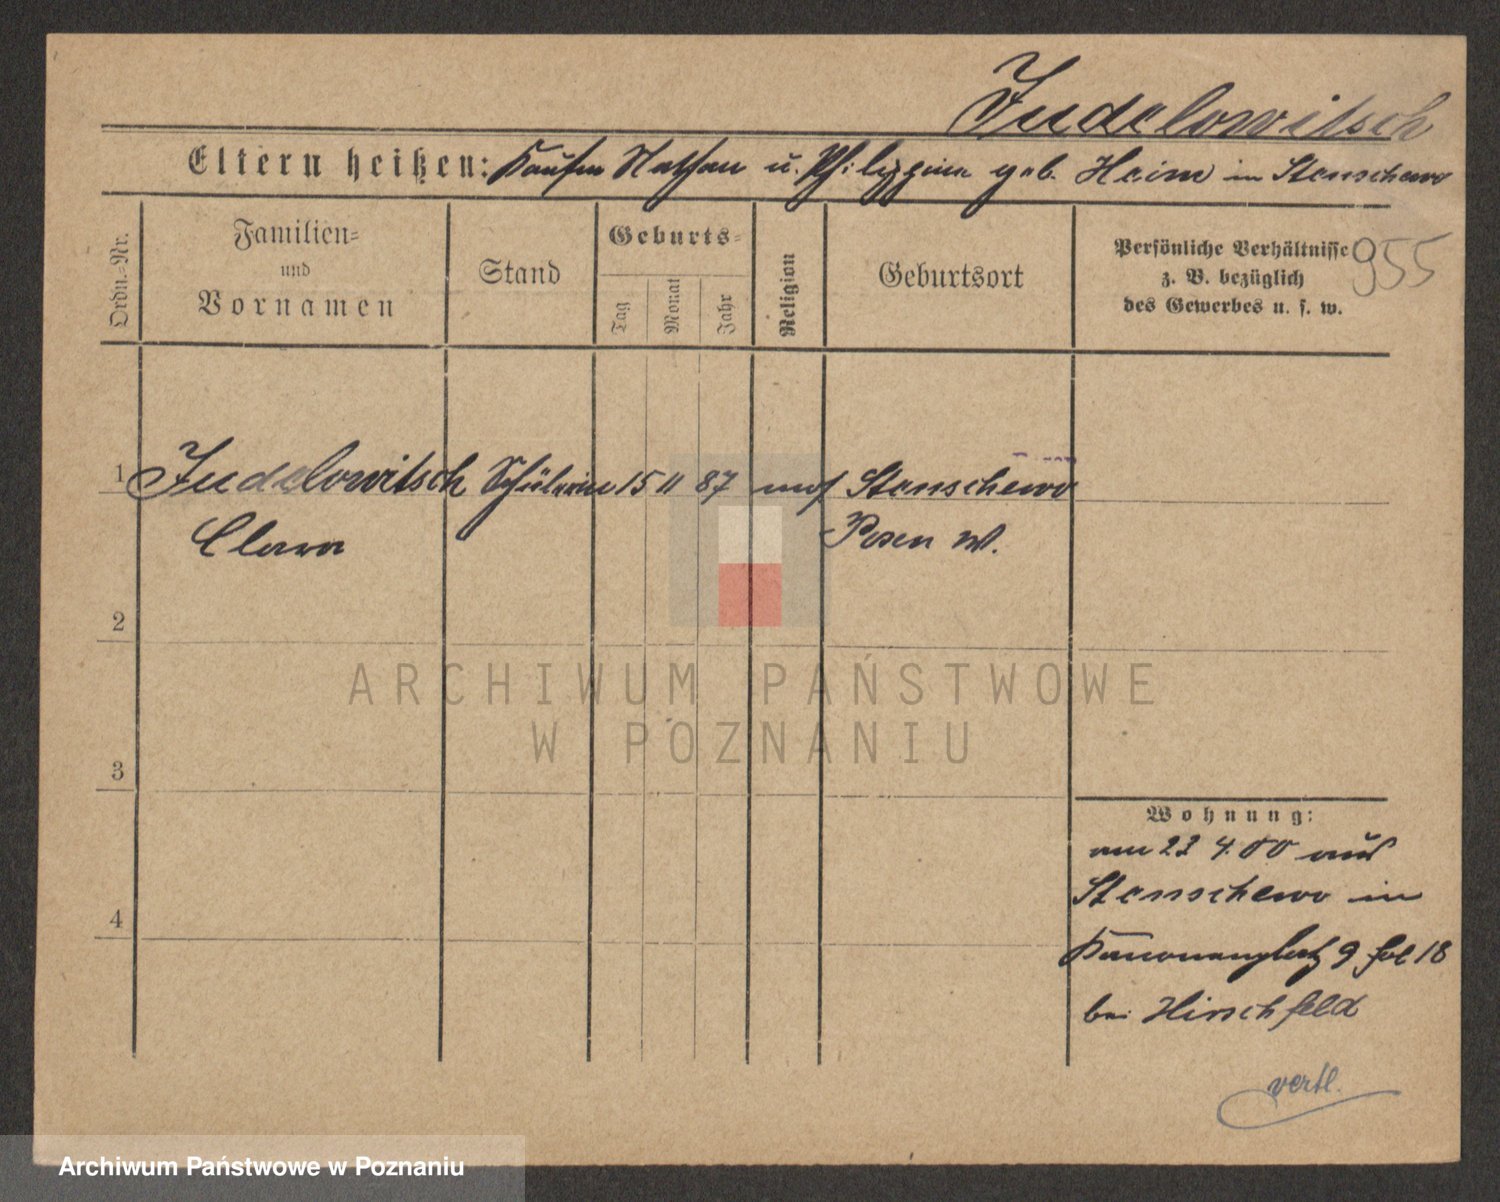 Judelowitsch
Eltern heißen: Kaufm Nathan u. Philippine geb. Heim in Stenschewo
Ordn.-Nr.
Familien-
und
Vornamen
Stand
Geburts-
Tag
Monat
Jahr
Religion
Geburtsort
Persönliche Verhältnisse
z. B. bezüglich
des Gewerbes u. s. w.
955
1 Judelowitsch Schülerin 15 11 87 mos Stenschewo
Clara Posen W.
2
3
4
Wohnung:
am 23 4.00 aus
Stenschewo in
Kanonenplatz 9 fol 18
bei Hirschfeld
vertl.
ARCHIWUM PAŃSTWOWE
W POZNANIU
Archiwum Państwowe w Poznaniu